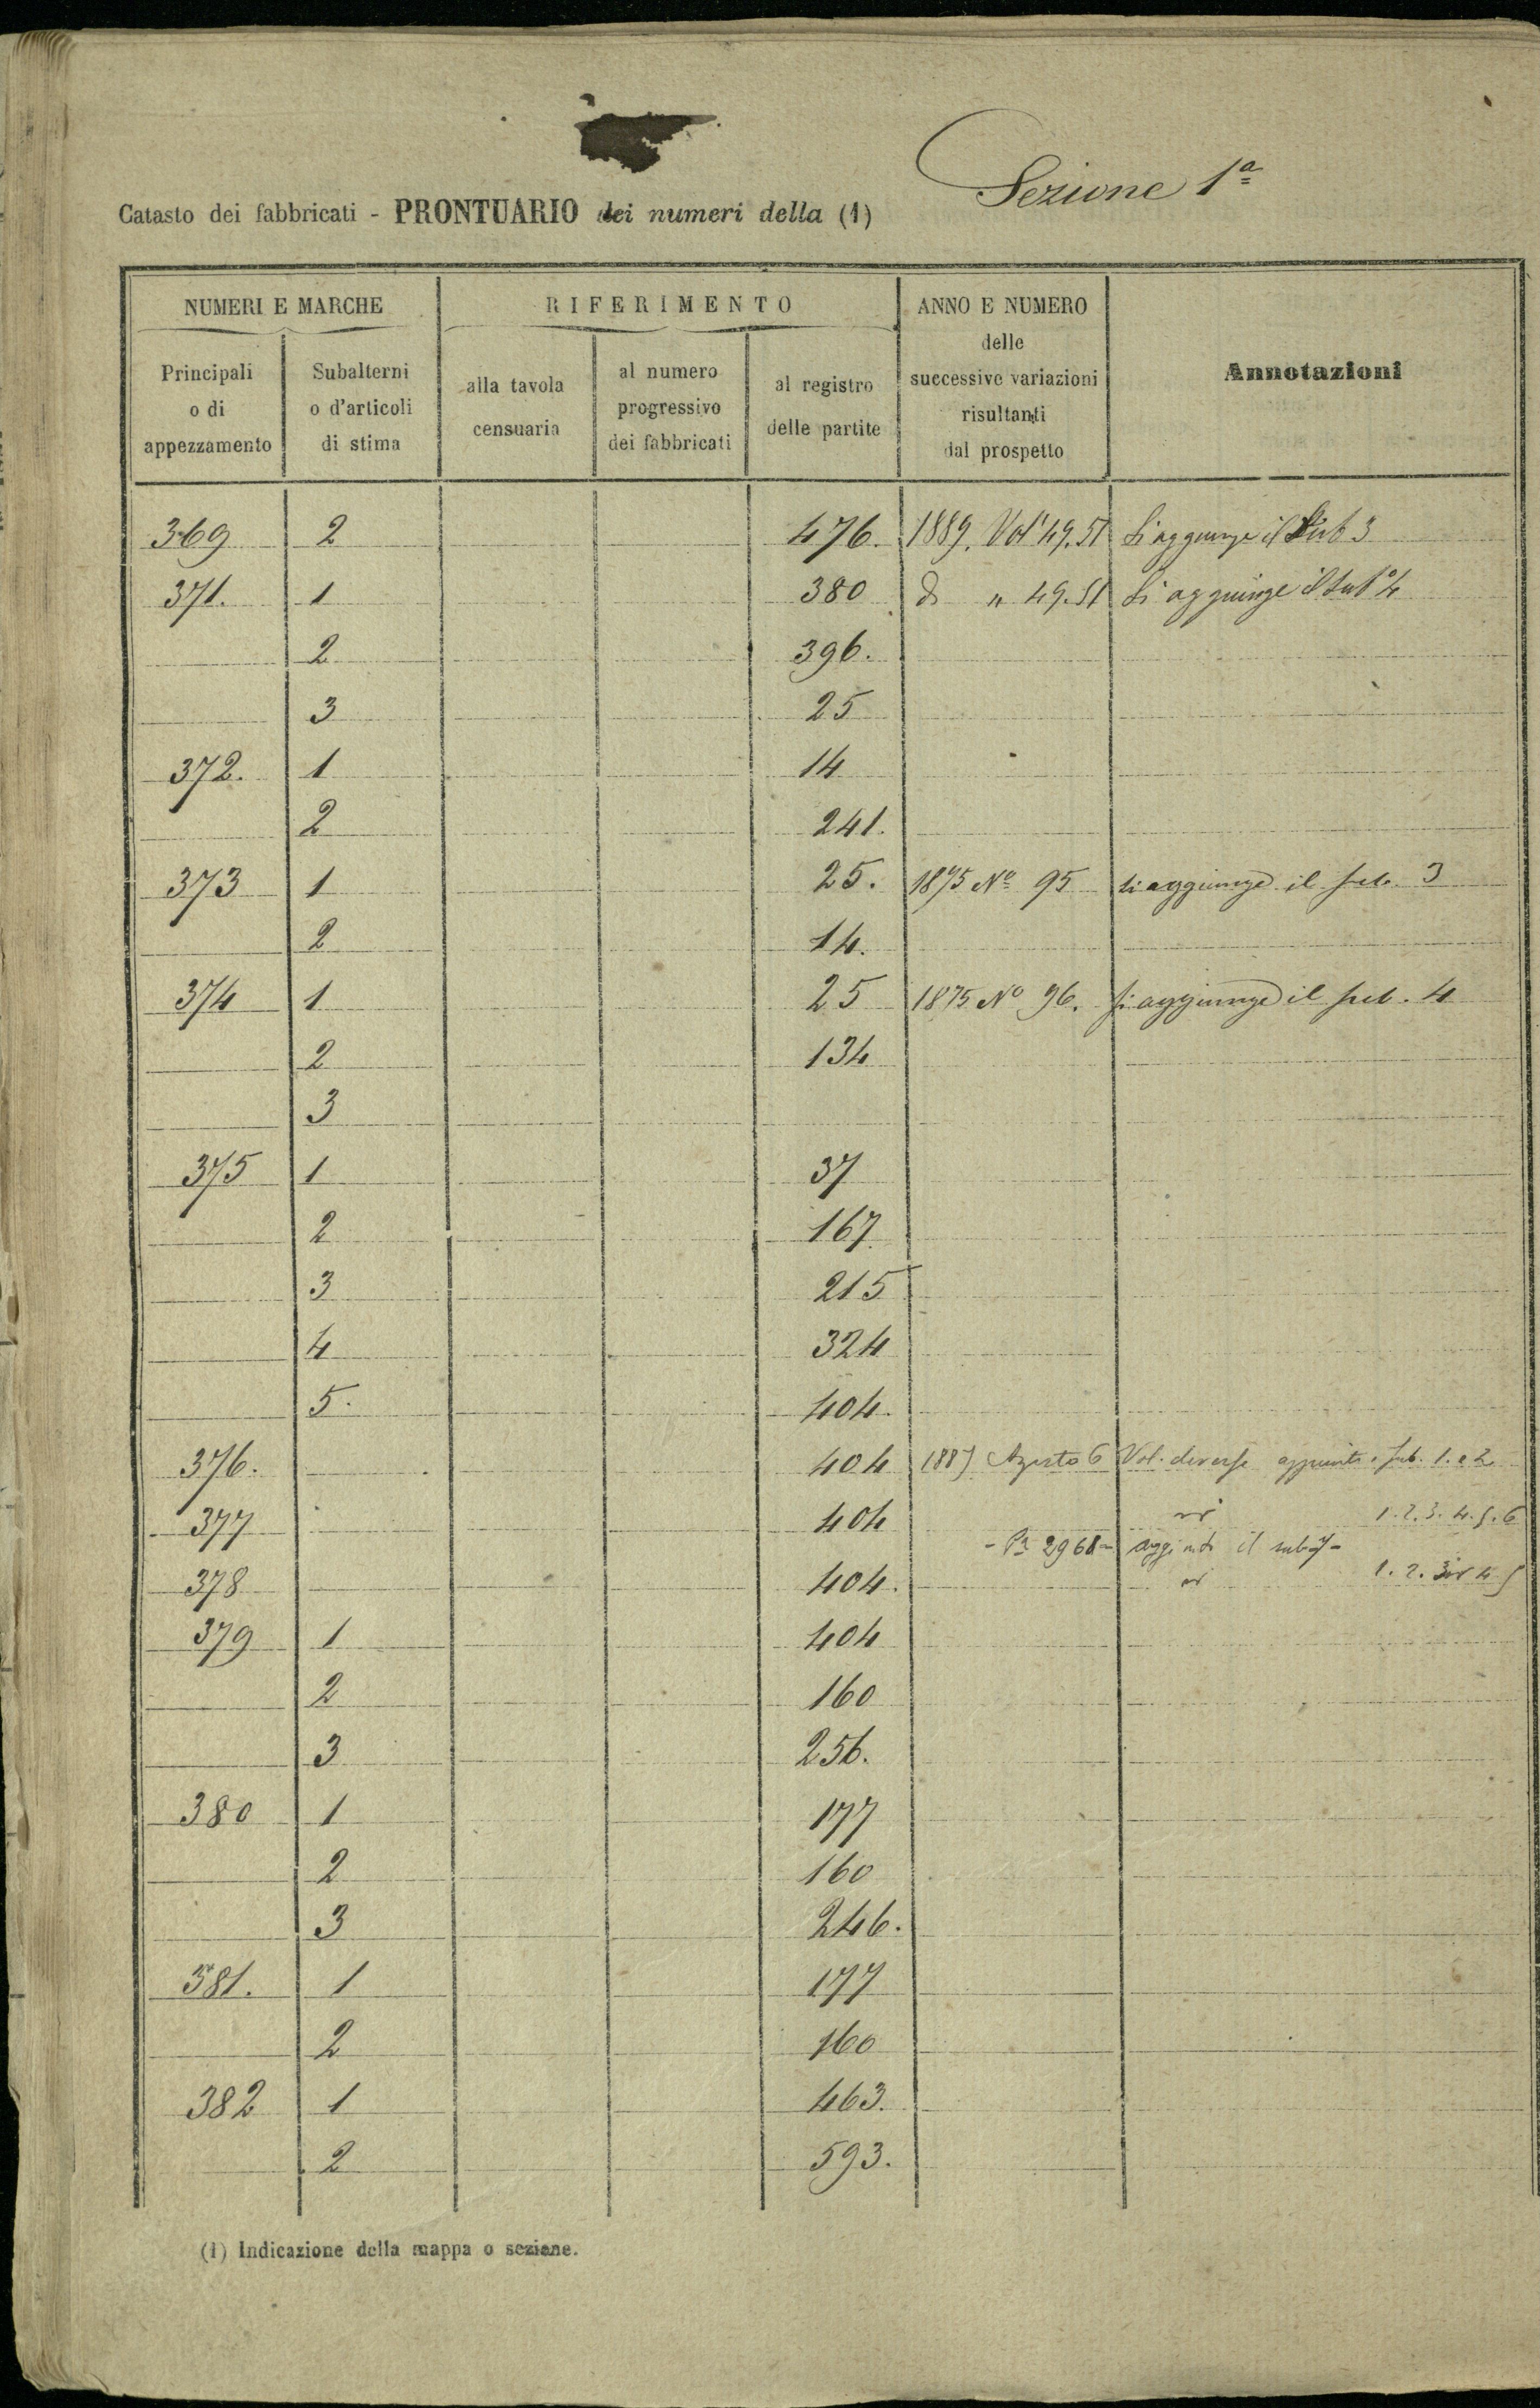 Sezione 1ª
Catasto dei fabbricati - PRONTUARIO dei numeri della (1)
NUMERI E MARCHE RIFERIMENTO ANNO E NUMERO delle successive variazioni risultanti dal prospetto Annotazioni
Principali o di appezzamento Subalterni o d'articoli di stima alla tavola censuaria al numero progressivo dei fabbricati al registro delle partite
369 2 476. 1889. Vol 49.51 Si aggiunge il Sub 3
371. 1 380 do " 49.51 Si aggiunge il sub 4
2 396.
3 25
372. 1 14
2 241.
373 1 25. 1875 Nº 95 si aggiunge il sub. 3
2 14.
374 1 25 1875 Nº 96. si aggiunge il sub. 4
2 134
3
375 1 37
2 167
3 215
4 324
5. 404.
376. 404 1887 Agosto 6 Vol. diverse sub. 1. e 2
377 404 1. 2. 3. 4. 5. 6
2968 aggiunto il sub 7
378 404. 1. 2. 3 4 5
379 1 404
2 160
3 256.
380 1 177
2 160
3 246.
381. 1 177
2 160
382 1 463.
2 593.
(1) Indicazione della mappa o sezione.